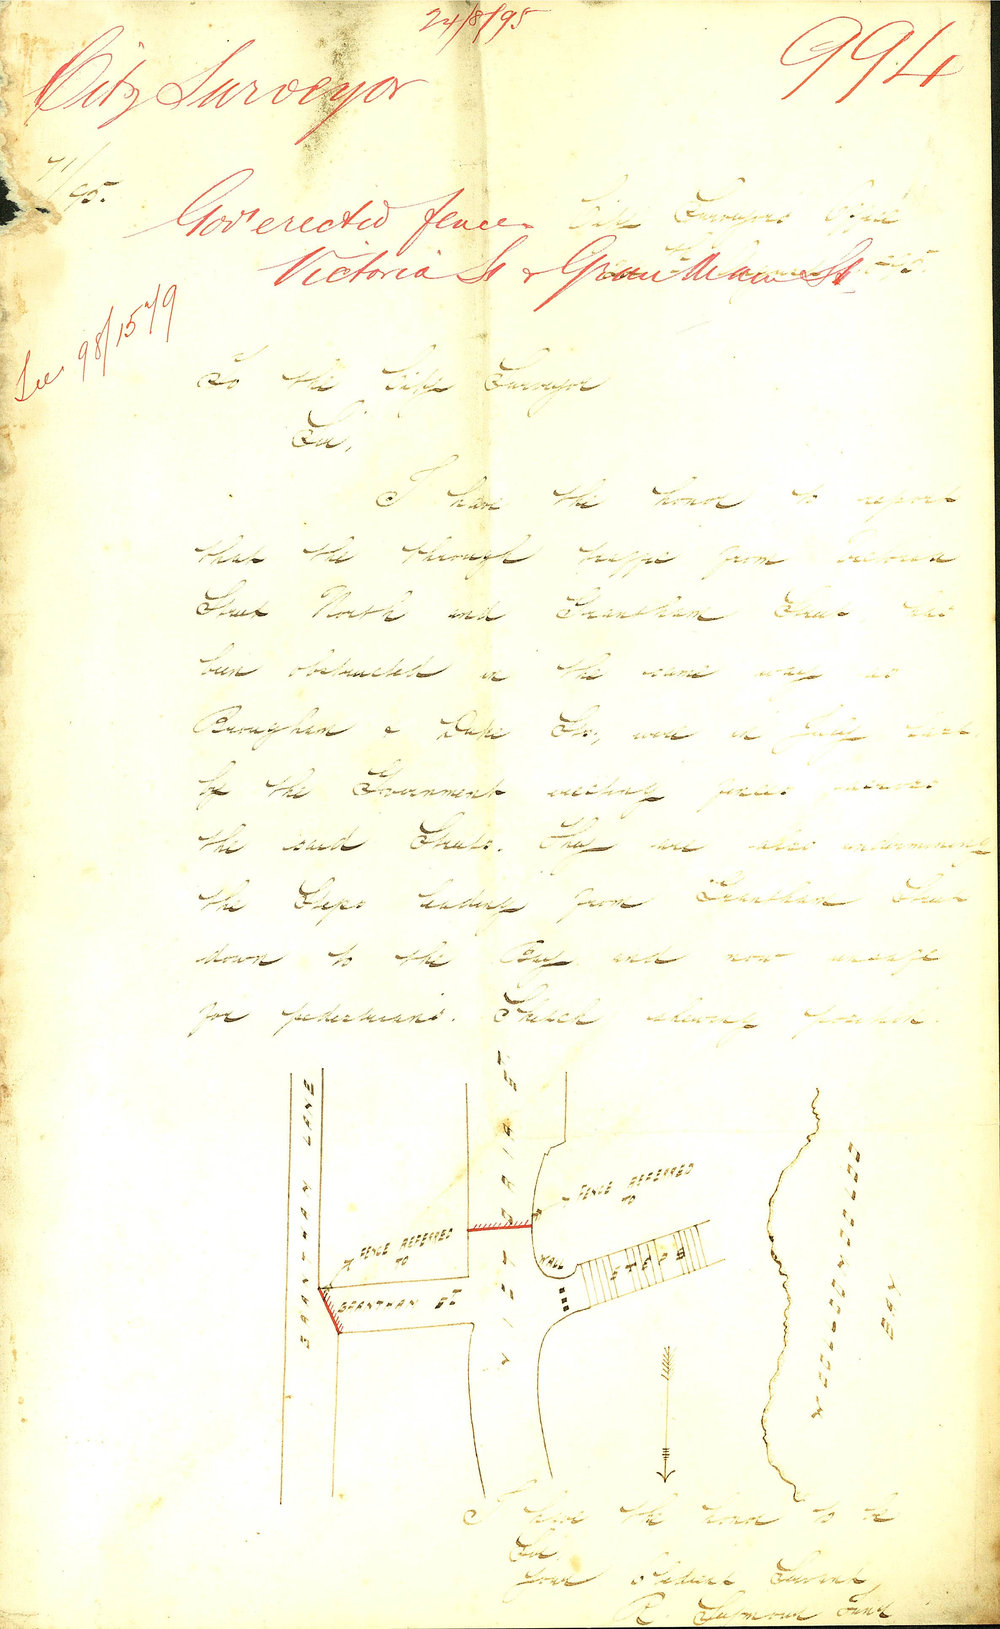 24/8/95
994
City Surveyor
71/95.
Gov erected fence
City Surveyors Office
Victoria St & Grantham St
See 98/1579
To the City Surveyor
Sir,
I have the honor to report
that the through traffic from Victoria
Street North and Grantham Street has
been obstructed in the same way as
Brougham & Duke Sts, were in July last
by the Government erecting fences across
the said Streets. They are also undermining
the Steps leading from Grantham Street
down to the Bay and now unsafe
for pedestrians. Sketch shewing position.
GRANTHAM LANE
VICTORIA ST
FENCE REFERRED
TO
FENCE REFERRED
TO
GRANTHAM ST
WALL
STEPS
WOOLLOOMOOLOO
BAY
I have the honor to be
Sir
Your Obedient Servant
R. Seymour